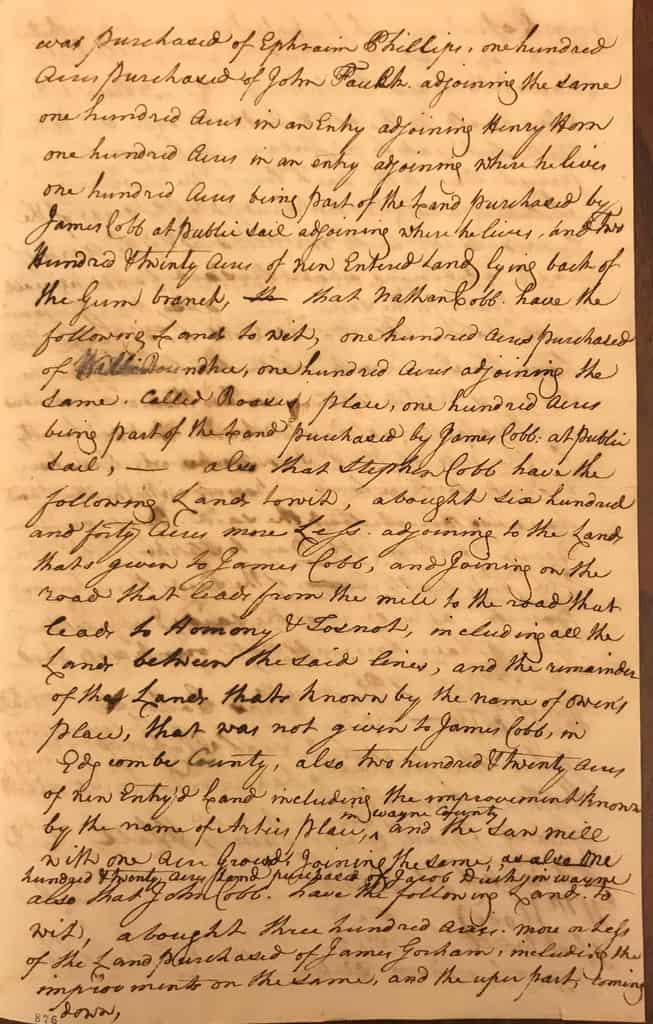 was purchased of Ephraim Phillips, one hundred
Acres purchased of John Faulk. adjoining the same
one hundred Acres in an Entry adjoining Henry Horn
one hundred Acres in an entry adjoining where he lives
one hundred Acres being part of the Land purchased by
James Cobb at public sail adjoining where he lives, and Two
Hundred & twenty Acres of new Entered Land lying back of
the Gum branch, that Nathan Cobb. have the
following Lands to wit, one hundred Acres purchased
of Roundtree, one hundred Acres adjoining the
same. Called place, one hundred Acres
being part of the Land purchased by James Cobb: at public
sail, — also that Stephen Cobb have the
following Lands towit, abought six hundred
and forty Acres more Less. adjoining to the Lands
thats given to James Cobb, and Joining on the
road that leads from the mile to the road that
leads to Homony & Tosnot, including all the
Lands between the said lines, and the remainder
of the Lands thats known by the name of owin's
place, that was not given to James Cobb, in
Edgcombe County, also two hundred & twenty Acres
of new Entry'd Land including the improvement known
by the name of Artis place, in wayne County and the saw mill
with one Acre Ground Joining the same, as also One
hundred & twenty Acres Land purchased of Jacob in wayne
also that John Cobb. have the following Lands. to
wit, abought three hundred Acres. more or Less
of the Land purchased of James Gorham; including the
improovments on the same, and the uper part, coming
down,
876